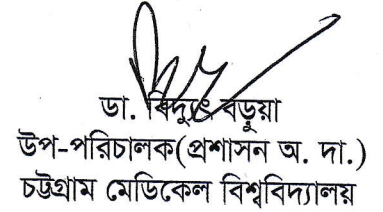 ডা. বিদ্যুৎ বড়ুয়া
উপ-পরিচালক(প্রশাসন অ. দা.)
চট্টগ্রাম মেডিকেল বিশ্ববিদ্যালয়